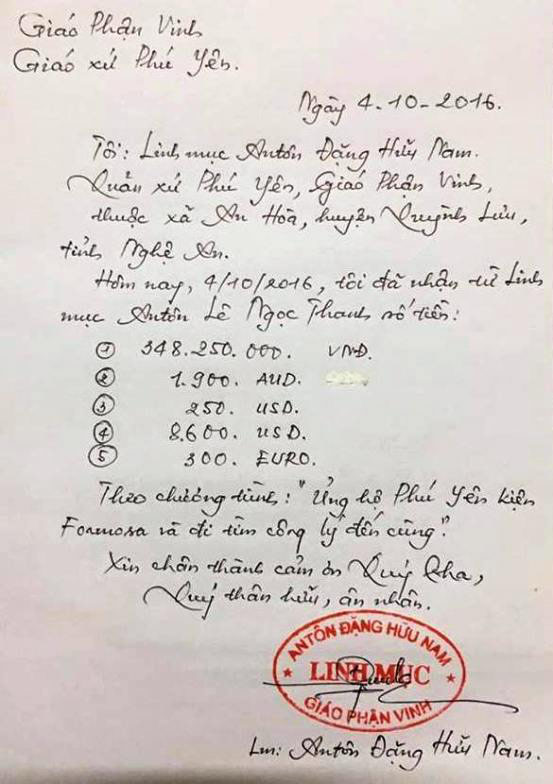 Giáo Phận Vinh
Giáo xứ Phú Yên.
Ngày 4-10-2016.
Tôi: Linh mục Antôn Đặng Hữu Nam.
Quản xứ Phú Yên, Giáo Phận Vinh,
thuộc xã An Hòa, huyện Quỳnh Lưu,
tỉnh Nghệ An.
Hôm nay, 4/10/2016, tôi đã nhận từ Linh
mục Antôn Lê Ngọc Thanh số tiền:
① 348.250.000. VNĐ.
② 1.900. AUD.
③ 250. USD.
④ 8.600. USD.
⑤ 300. EURO.
Theo chương trình: "Ủng hộ Phú Yên kiện
Formosa và đi tìm công lý đến cùng".
Xin chân thành cảm ơn Quý Cha,
Quý thân hữu, ân nhân.
ANTÔN ĐẶNG HỮU NAM
LINH MỤC
GIÁO PHẬN VINH
Lm: Antôn Đặng Hữu Nam.